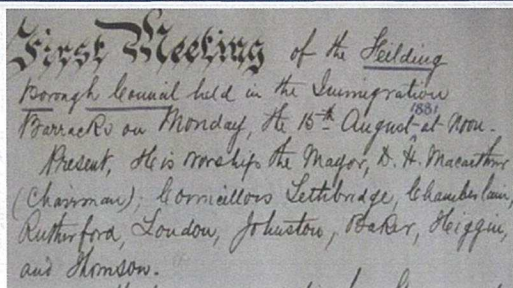 First Meeting of the Feilding
Borough Council held in the Immigration
Barracks on Monday, the 15th August 1881 at Noon.
Present, His Worship the Mayor, D. H. Macarthur
(Chairman); Councillors Lethbridge, Chamberlain,
Rutherford, London, Johnston, Baker, Higgin,
and Thomson.